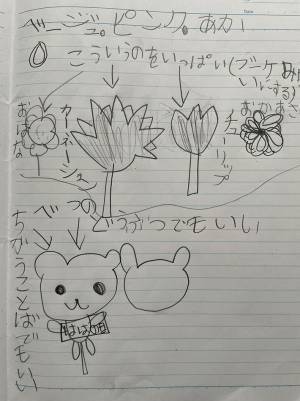 ベージュ。ピンク。あか
こういうのをいっぱい(ブーケ
みたいにする)
おかあさ
おはな
カーネーション
チューリップ
べつのどうぶつでもいい
ちがうことばでもいい